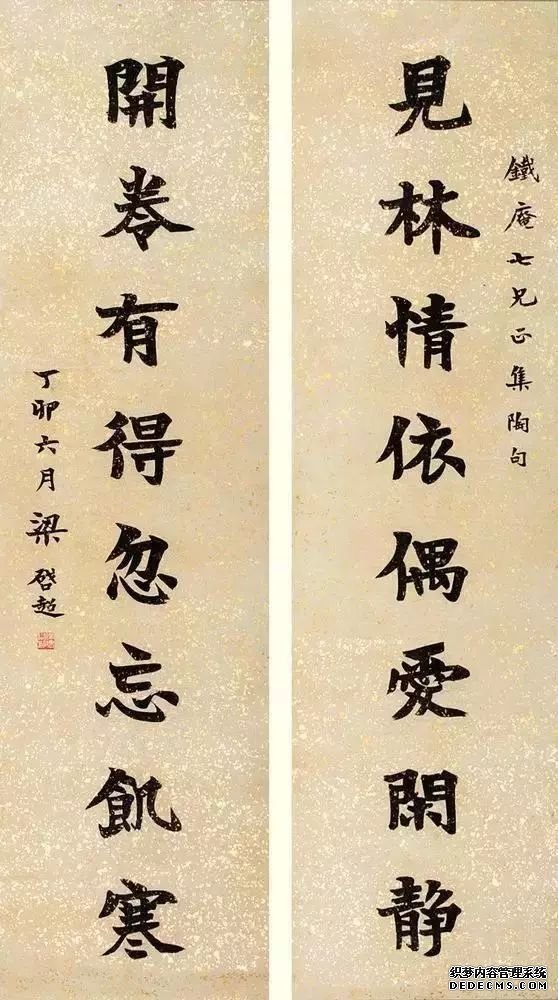 鐵庵七兄正集陶句
見林情依偶愛閑静
開卷有得忽忘飢寒
丁卯六月梁啓超
织梦内容管理系统
DEDECMS.COM